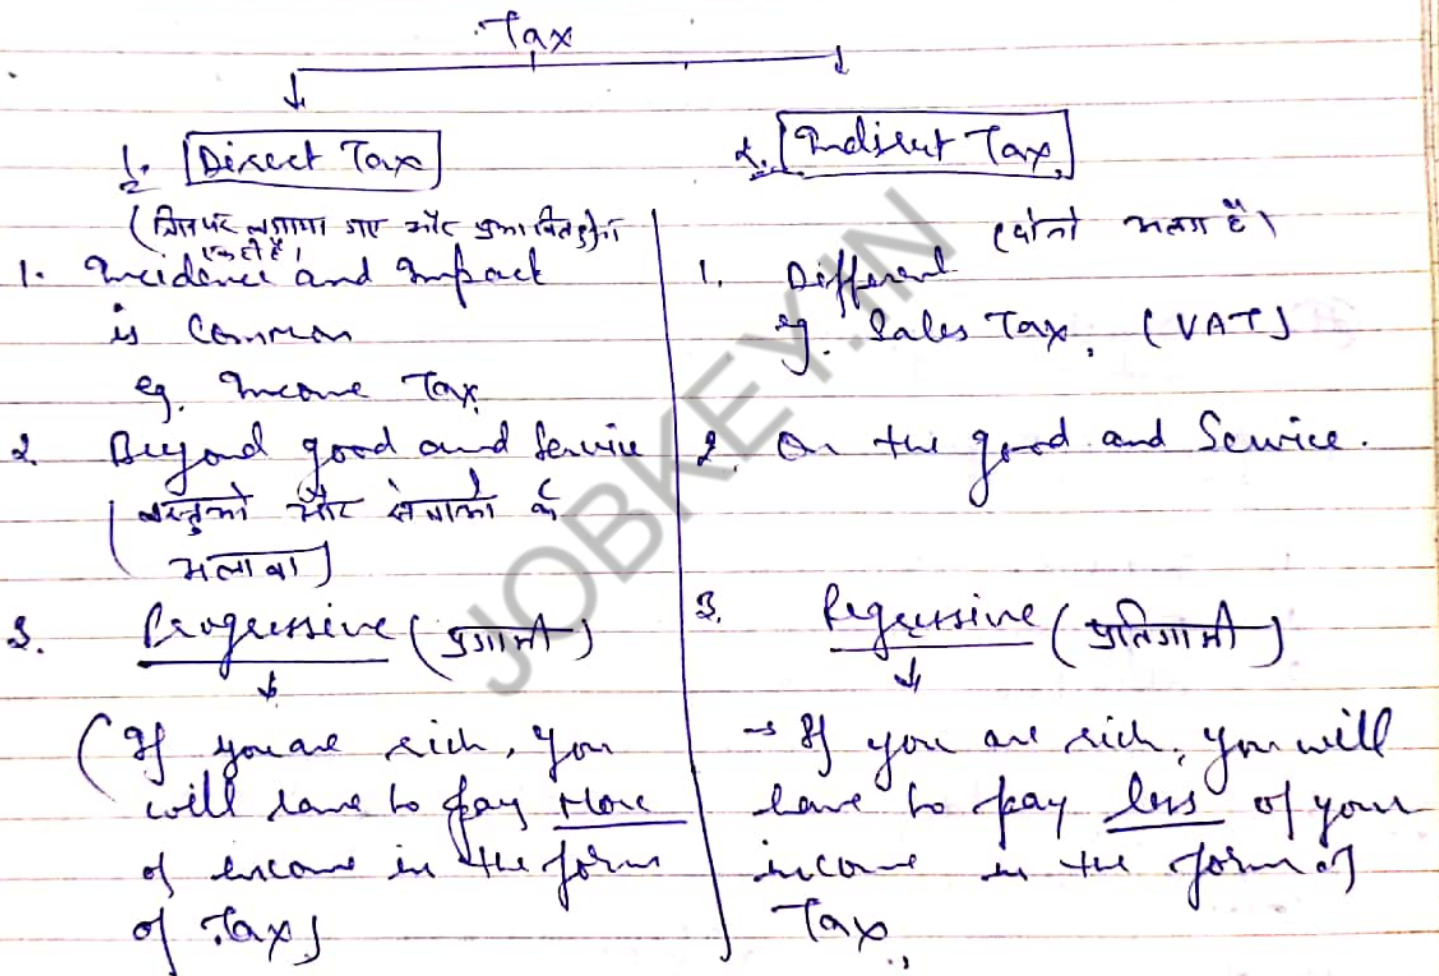 Tax
1. Direct Tax
2. Indirect Tax
(जिसपर लगाया जाए और प्रभावित होगा
एक ही है।
(दोनो अलग है।
1. Incidence and Impact
is Common
eg. Income Tax
2. Beyond good and Service
(वस्तुओ और सेवाओ के
अलावा)
3. Progressive (प्रगामी)
(If you are rich, you
will have to pay More
of income in the form
of Tax)
1. Different
eg. Sales Tax, (VAT)
2. On the good and Service.
3. Regressive (प्रतिगामी)
→ If you are rich, you will
have to pay less of your
income in the form of
Tax.
JOBKEY.IN